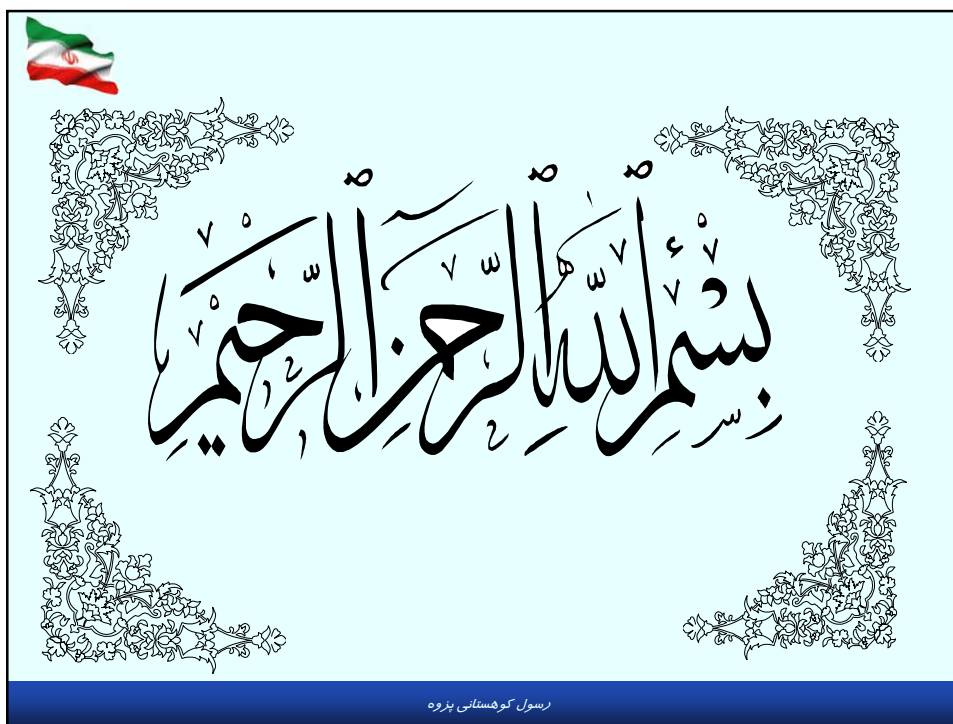 بِسْمِ اللَّهِ الرَّحْمَنِ الرَّحِيمِ
رسول کوهستانی پزوه